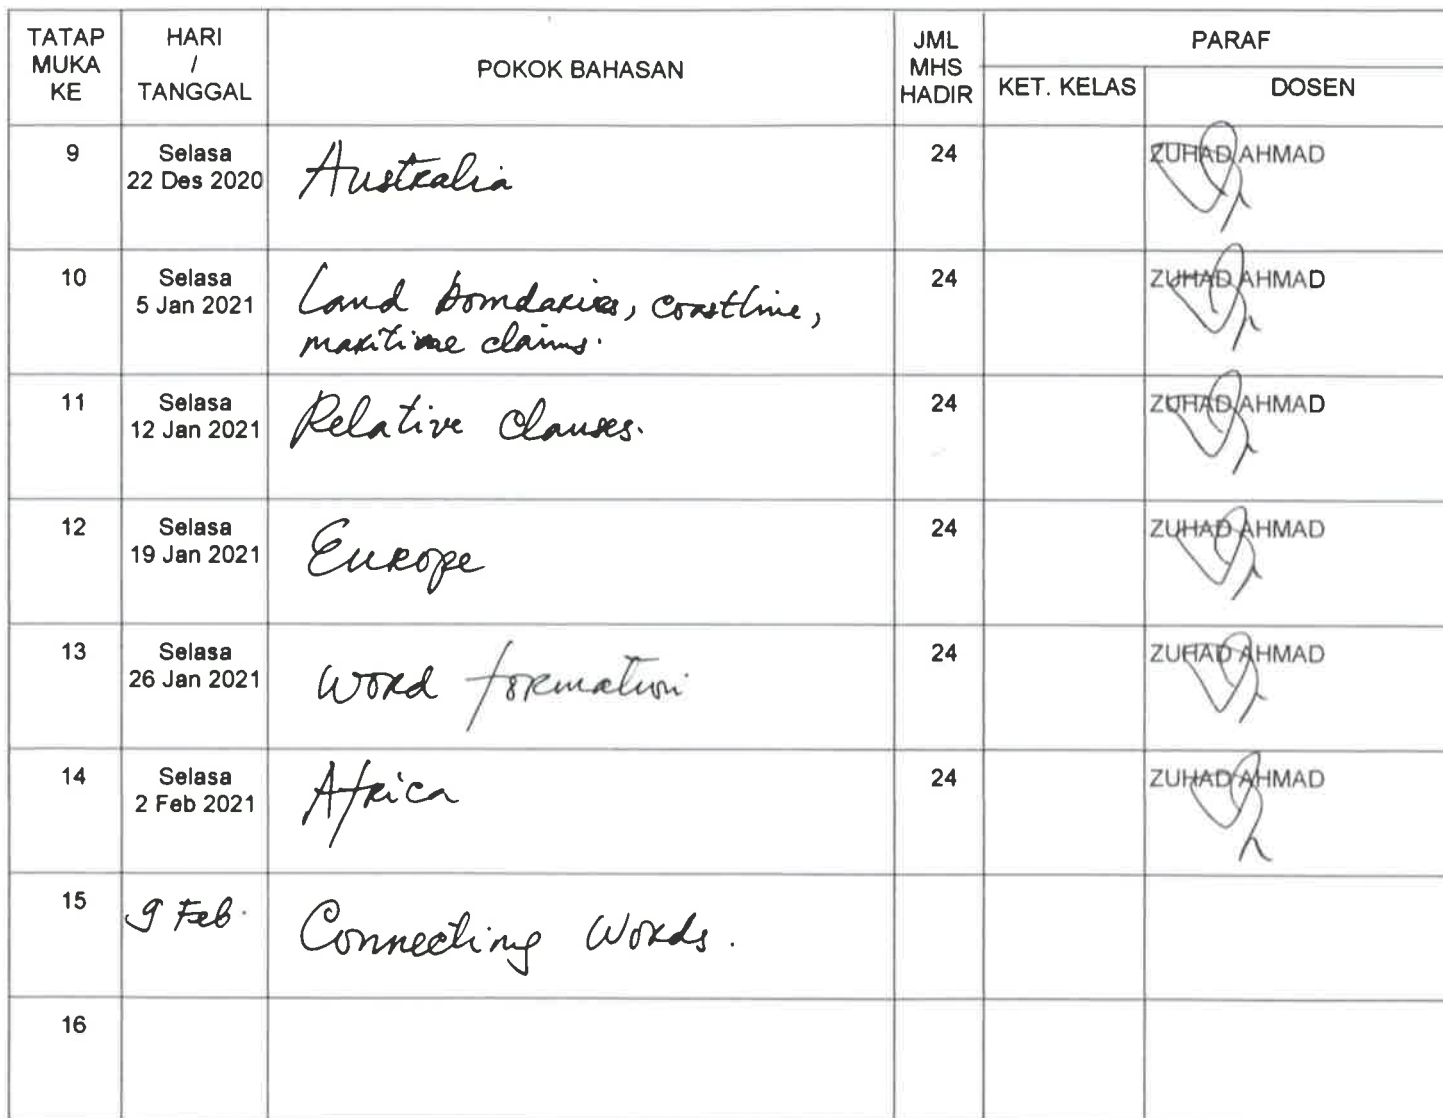 TATAP MUKA KE
HARI / TANGGAL
POKOK BAHASAN
JML MHS HADIR
PARAF
KET. KELAS
DOSEN
9
Selasa
22 Des 2020
Australia
24
ZUHAD AHMAD
10
Selasa
5 Jan 2021
Land boundaries, coastline,
maritime claims.
24
ZUHAD AHMAD
11
Selasa
12 Jan 2021
Relative Clauses.
24
ZUHAD AHMAD
12
Selasa
19 Jan 2021
Europe
24
ZUHAD AHMAD
13
Selasa
26 Jan 2021
Word formation
24
ZUHAD AHMAD
14
Selasa
2 Feb 2021
Africa
24
ZUHAD AHMAD
15
9 Feb.
Connecting Words.
16